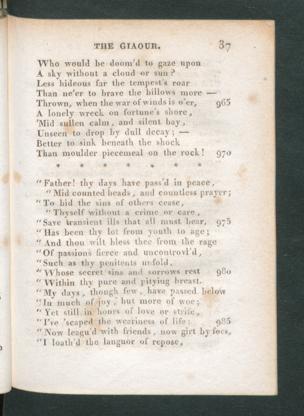 THE GIAOUR. 37
Who would be doom'd to gaze upon
A sky without a cloud or sun?
Less hideous far the tempest's roar
Than ne'er to brave the billows more —
Thrown, when the war of winds is o'er, 965
A lonely wreck on fortune's shore,
'Mid sullen calm, and silent bay,
Unseen to drop by dull decay; —
Better to sink beneath the shock
Than moulder piecemeal on the rock! 970
* * * * * * *
"Father! thy days have pass'd in peace,
"Mid counted beads, and countless prayer;
"To bid the sins of others cease,
"Thyself without a crime or care,
"Save transient ills that all must bear, 975
"Has been thy lot from youth to age;
"And thou wilt bless thee from the rage
"Of passions fierce and uncontrol'd,
"Such as thy penitents unfold,
"Whose secret sins and sorrows rest 980
"Within thy pure and pitying breast.
"My days, though few, have passed below
"In much of joy, but more of woe;
"Yet still in hours of love or strife,
"I've 'scaped the weariness of life; 985
"Now leagu'd with friends, now girt by foes,
"I loath'd the languor of repose,